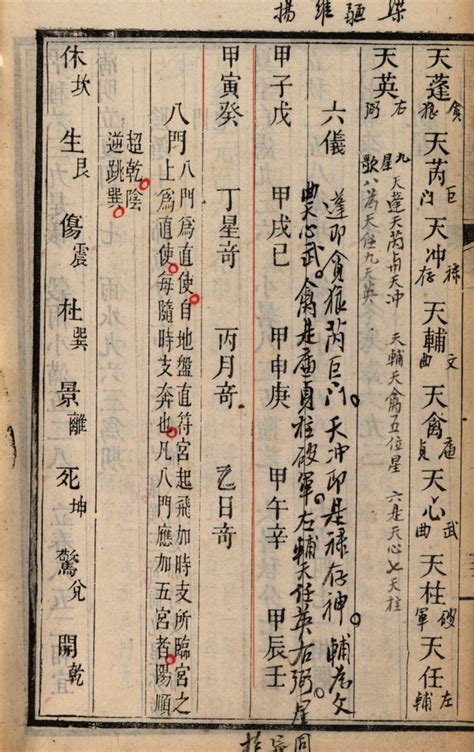 天蓬貪狼 天芮巨門 天冲祿存 天輔文曲 天禽廉貞 天心武曲 天柱破軍 天任左輔
天英右弼
九星歌
天蓬天芮與天冲 天輔天禽五位星 六是天心七天柱
八為天任九天英
六儀
蓬即貪狼芮巨门。天冲即是祿存神。輔為文
曲天心武。禽是廉貞柱破軍。左輔天任英右弼
甲子戊 甲戌已 甲申庚 甲午辛 甲辰壬
甲寅癸 丁星奇 丙月奇 乙日奇
八門 八門爲直使自地盤直符宮起飛加時支所臨宮之
上爲直使每隨時支奔也凡八門應加五宮者陽順
超乾陰
逆跳巽
休坎 生艮 傷震 杜巽 景離 死坤 驚兌 開乾